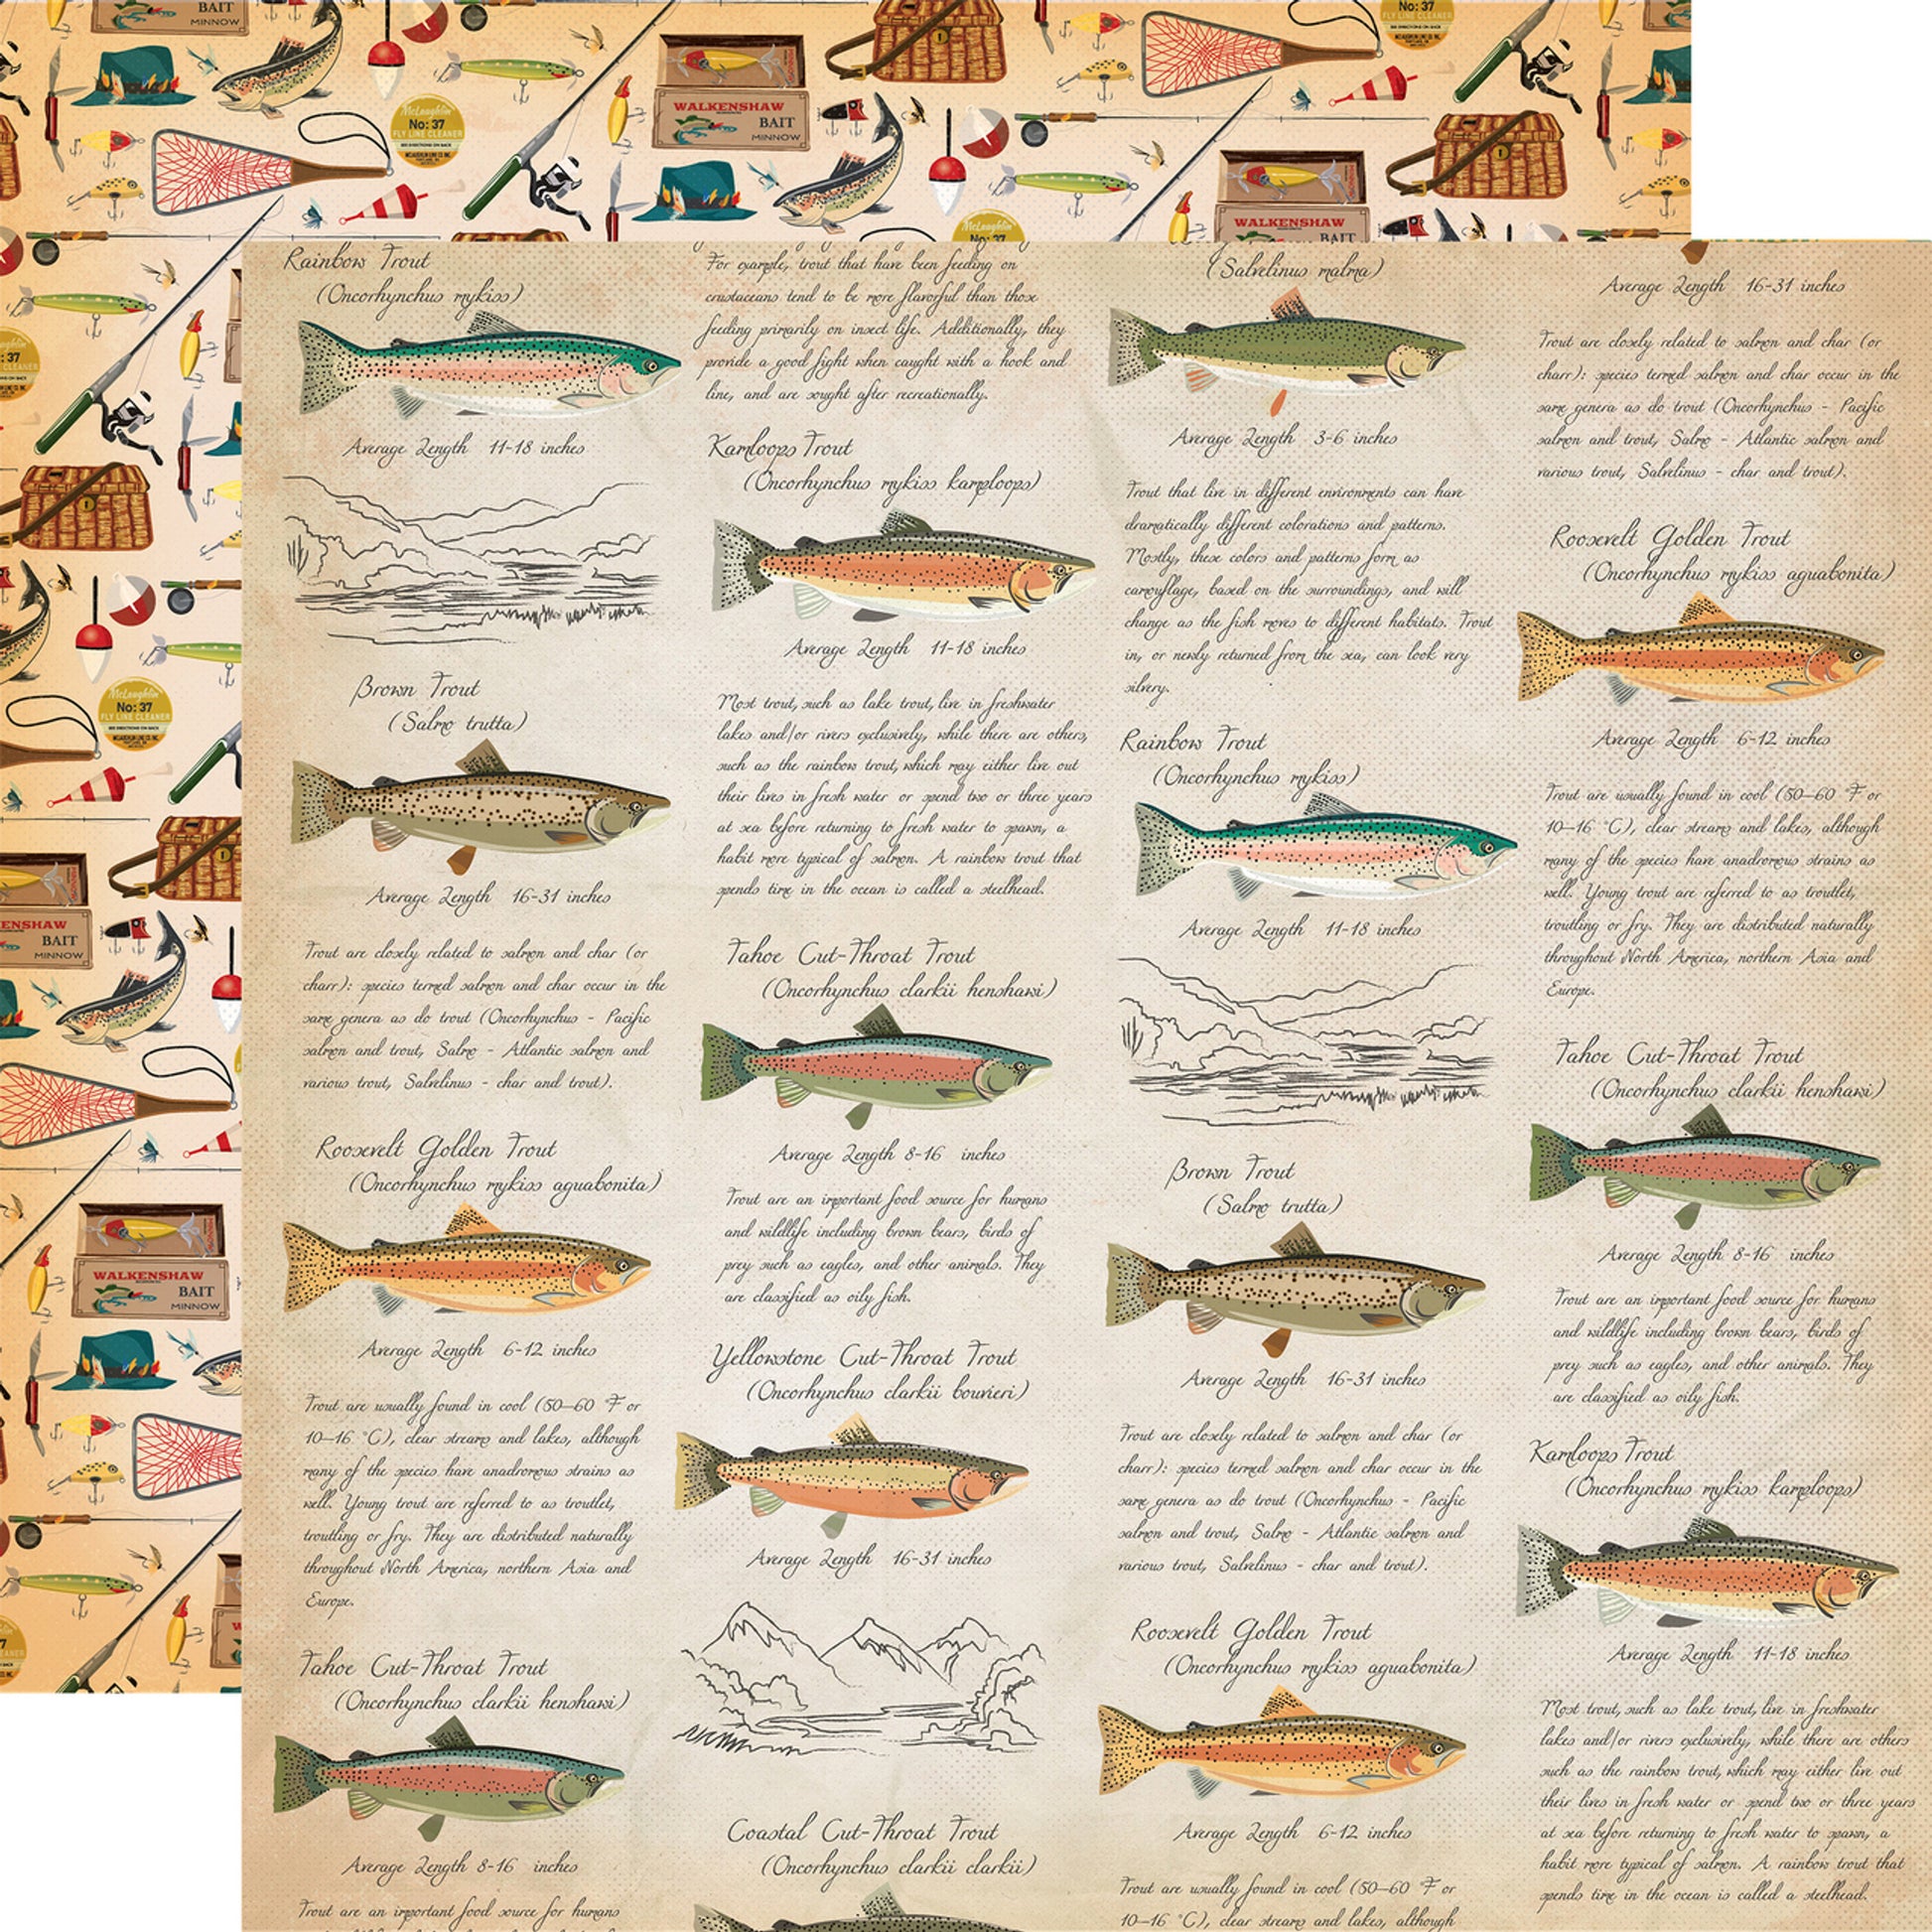 No: 37
FLY LINE CLEANER
SEE DIRECTIONS ON BACK
McLoughlin
No: 37
FLY LINE CLEANER
SEE DIRECTIONS ON BACK
McLOUGHLIN LINE CO. INC.
WALKENSHAW
BAIT
MINNOW
WALKENSHAW
BAIT
No: 37
: 37
McLoughlin
No: 37
FLY LINE CLEANER
SEE DIRECTIONS ON BACK
McLOUGHLIN LINE CO. INC.
ENSHAW
BAIT
MINNOW
WALKENSHAW
BAIT
MINNOW
Rainbow Trout
(Oncorhynchus mykiss)
Average Length 11-18 inches
Brown Trout
(Salmo trutta)
Average Length 16-31 inches
Trout are closely related to salmon and char (or
charr): species termed salmon and char occur in the
same genera as do trout (Oncorhynchus - Pacific
salmon and trout, Salmo - Atlantic salmon and
various trout, Salvelinus - char and trout).
Roosevelt Golden Trout
(Oncorhynchus mykiss aguabonita)
Average Length 6-12 inches
Trout are usually found in cool (50–60 °F or
10–16 °C), clear streams and lakes, although
many of the species have anadromous strains as
well. Young trout are referred to as troutlet,
troutling or fry. They are distributed naturally
throughout North America, northern Asia and
Europe.
Tahoe Cut-Throat Trout
(Oncorhynchus clarkii henshawi)
Average Length 8-16 inches
Trout are an important food source for humans
For example, trout that have been feeding on
crustaceans tend to be more flavorful than those
feeding primarily on insect life. Additionally, they
provide a good fight when caught with a hook and
line, and are sought after recreationally.
Kamloops Trout
(Oncorhynchus mykiss kamploops)
Average Length 11-18 inches
Most trout, such as lake trout, live in freshwater
lakes and/or rivers exclusively, while there are others,
such as the rainbow trout, which may either live out
their lives in fresh water or spend two or three years
at sea before returning to fresh water to spawn, a
habit more typical of salmon. A rainbow trout that
spends time in the ocean is called a steelhead.
Tahoe Cut-Throat Trout
(Oncorhynchus clarkii henshawi)
Average Length 8-16 inches
Trout are an important food source for humans
and wildlife including brown bears, birds of
prey such as eagles, and other animals. They
are classified as oily fish.
Yellowstone Cut-Throat Trout
(Oncorhynchus clarkii bouvieri)
Average Length 16-31 inches
Coastal Cut-Throat Trout
(Oncorhynchus clarkii clarkii)
(Salvelinus malma)
Average Length 3-6 inches
Trout that live in different environments can have
dramatically different colorations and patterns.
Mostly, these colors and patterns form as
camouflage, based on the surroundings, and will
change as the fish moves to different habitats. Trout
in, or newly returned from the sea, can look very
silvery.
Rainbow Trout
(Oncorhynchus mykiss)
Average Length 11-18 inches
Brown Trout
(Salmo trutta)
Average Length 16-31 inches
Trout are closely related to salmon and char (or
charr): species termed salmon and char occur in the
same genera as do trout (Oncorhynchus - Pacific
salmon and trout, Salmo - Atlantic salmon and
various trout, Salvelinus - char and trout).
Roosevelt Golden Trout
(Oncorhynchus mykiss aguabonita)
Average Length 6-12 inches
Trout are usually found in cool (50–60 °F or
10–16 °C), clear streams and lakes, although
Average Length 16-31 inches
Trout are closely related to salmon and char (or
charr): species termed salmon and char occur in the
same genera as do trout (Oncorhynchus - Pacific
salmon and trout, Salmo - Atlantic salmon and
various trout, Salvelinus - char and trout).
Roosevelt Golden Trout
(Oncorhynchus mykiss aguabonita)
Average Length 6-12 inches
Trout are usually found in cool (50–60 °F or
10–16 °C), clear streams and lakes, although
many of the species have anadromous strains as
well. Young trout are referred to as troutlet,
troutling or fry. They are distributed naturally
throughout North America, northern Asia and
Europe.
Tahoe Cut-Throat Trout
(Oncorhynchus clarkii henshawi)
Average Length 8-16 inches
Trout are an important food source for humans
and wildlife including brown bears, birds of
prey such as eagles, and other animals. They
are classified as oily fish.
Kamloops Trout
(Oncorhynchus mykiss kamploops)
Average Length 11-18 inches
Most trout, such as lake trout, live in freshwater
lakes and/or rivers exclusively, while there are others
such as the rainbow trout, which may either live out
their lives in fresh water or spend two or three years
at sea before returning to fresh water to spawn, a
habit more typical of salmon. A rainbow trout that
spends time in the ocean is called a steelhead.